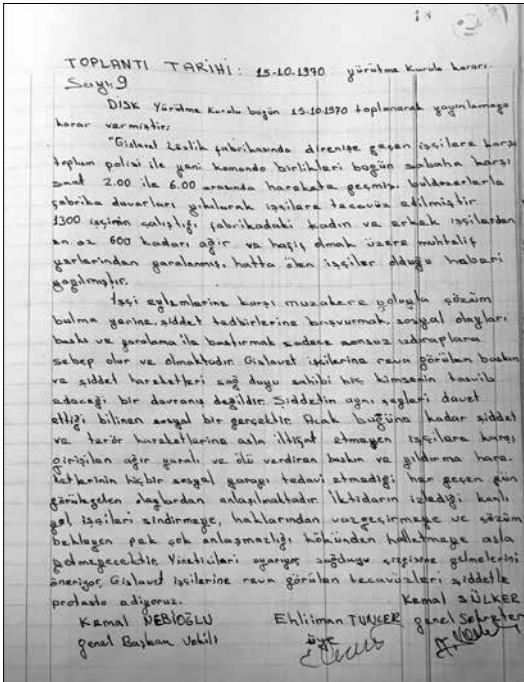 18
TOPLANTI TARİHİ: 15-10-1970 yürütme Kurulu kararı.
Sayı: 9
DİSK Yürütme Kurulu bugün 15-10-1970 toplanarak yayınlamaya
karar vermiştir:
"Gislavet Lâstik fabrikasında direnişe geçen işçilere karşı
toplum polisi ile yeni komando birlikleri bugün sabaha karşı
saat 2.00 ile 6.00 arasında harekata geçmiş, buldozerlerle
fabrika duvarları yıkılarak işçilere tecavüz edilmiştir.
1300 işçinin çalıştığı fabrikadaki kadın ve erkek işçilerden
en az 600 kadarı ağır ve hafif olmak üzere muhtelif
yerlerinden yaralanmış, hatta ölen işçiler olduğu haberi
yayılmıştır.
İşçi eylemlerine karşı müzakere yoluyla çözüm
bulma yerine, şiddet tedbirlerine başvurmak, sosyal olayları
baskı ve yaralama ile bastırmak sadece sonsuz ızdıraplara
sebep olur ve olmaktadır. Gislavet işçilerine reva görülen baskın
ve şiddet hareketleri sağ duyu sahibi hiç kimsenin tasvib
edeceği bir davranış değildir. Şiddetin aynı şeyleri davet
ettiği bilinen sosyal bir gerçektir. Acak bugüne kadar şiddet
ve terör hareketlerine asla iltifat etmeyen işçilere karşı
girişilen ağır yaralı ve ölü verdiren baskın ve yıldırma hare-
ketlerinin hiçbir sosyal yarayı tedavi etmediği her geçen gün
görülegelen olaylardan anlaşılmaktadır. İktidarın izlediği kanlı
yol işçileri sindirmeye, haklarından vazgeçirmeye ve çözüm
bekleyen pek çok anlaşmazlığı kökünden halletmeye asla
yetmeyecektir. Yöneticileri uyarıyor, sağduyu çizgisine gelmelerini
öneriyor, Gislavet işçilerine reva görülen tecavüzleri şiddetle
protesto ediyoruz.
Kemal NEBİOĞLU Ehliiman TUNCER Kemal SÜLKER
genel Başkan Vekili üye genel Sekreter